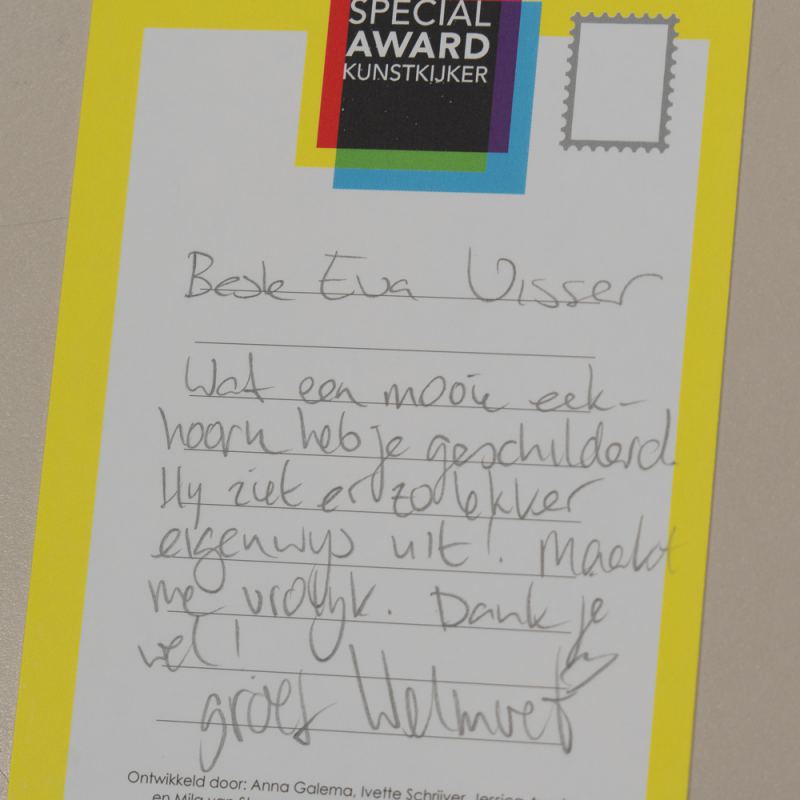 SPECIAL
AWARD
KUNSTKIJKER
Beste Eva Visser
Wat een mooie eek-
hoorn heb je geschilderd
Hij ziet er zo lekker
eigenwijs uit! Maakt
me vrolijk. Dank je
wel!
groet Welmoet
Ontwikkeld door: Anna Galema, Ivette Schrijver,
en Mila van